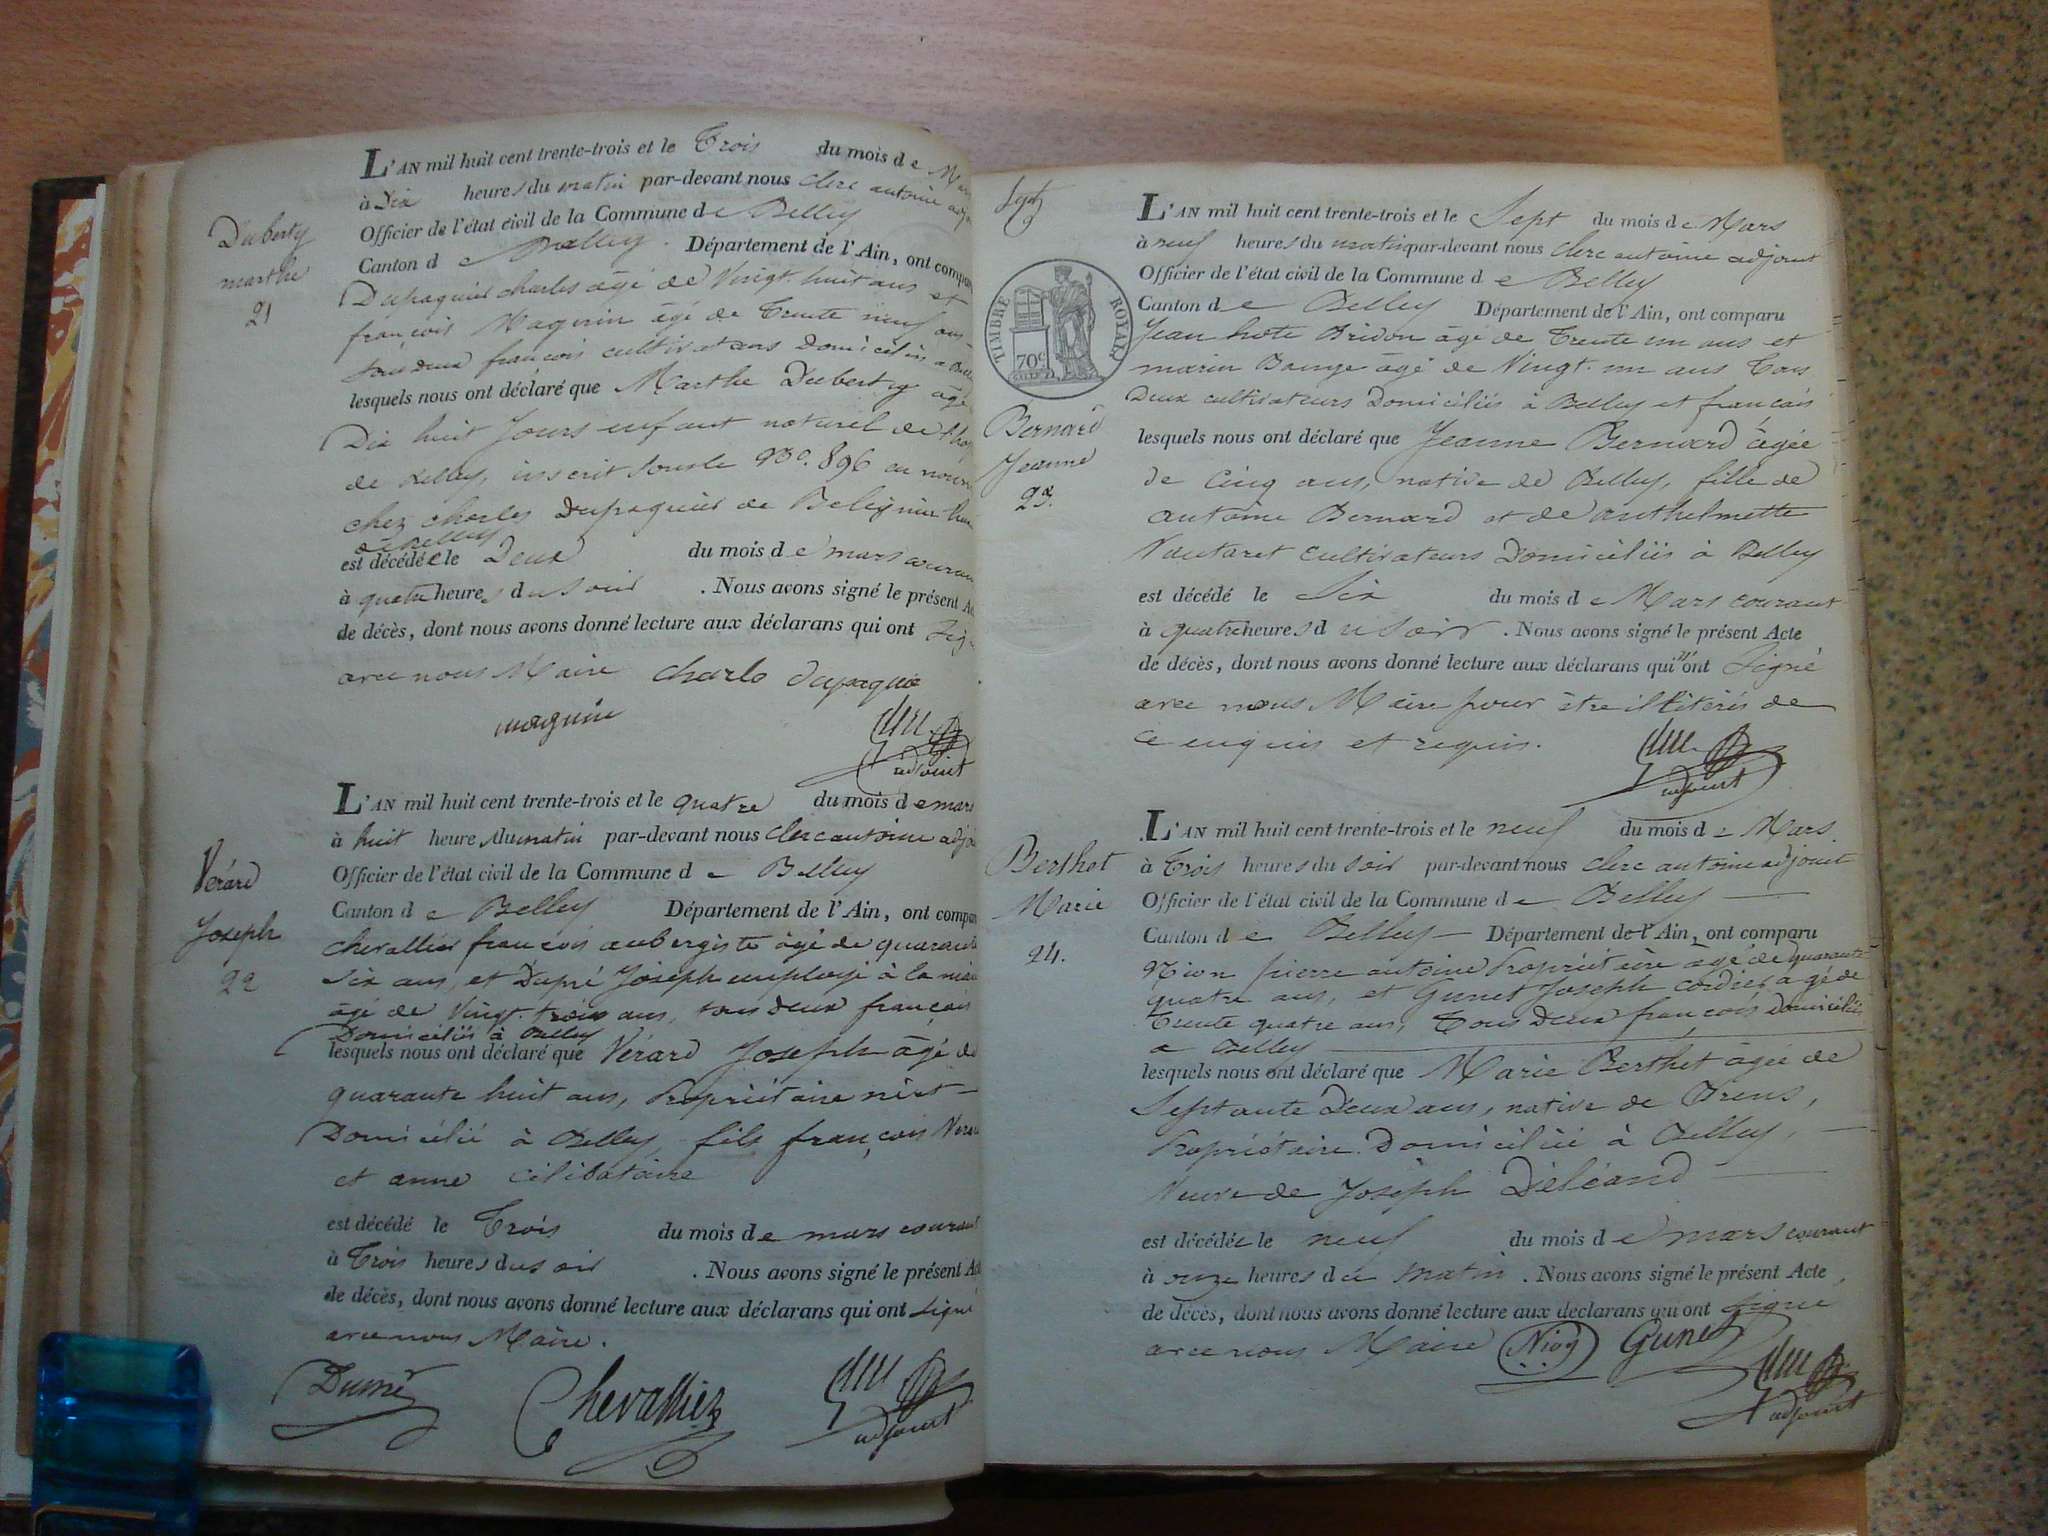 L'AN mil huit cent trente-trois et le Trois du mois de
à Dix heures du matin par-devant nous clerc antoine
Officier de l'état civil de la Commune de Belley
Canton de Belley. Département de l'Ain, ont
Duberty
marthe
21
Dupaquier charles âgé de Vingt. huit ans et
françois Magnin âgé de Trente neuf ans
tous deux françois cultivateurs Domiciliés a
lesquels nous ont déclaré que Marthe Duberty âgé
Dix huit Jours enfant naturel de
de Belley, inscrit sous le No. 896 en
chez charles Dupaquier de
de Belley
est décédée le Deux du mois de mars
à quatre heures du soir . Nous avons signé le présent
de décès, dont nous avons donné lecture aux déclarans qui ont
avec nous Maire charle dupaquié
magnin
adjoint
L'AN mil huit cent trente-trois et le quatre du mois de mars
à huit heures du matin par-devant nous clerc antoine
Officier de l'état civil de la Commune de Belley
Canton de Belley Département de l'Ain, ont
Vérard
Joseph
22
chevallier françois aubergiste âgé de quarante
six ans, et Dupré Joseph employé à la
âgé de Vingt. trois ans, tous deux français
Domiciliés à Belley
lesquels nous ont déclaré que Vérard Joseph âgé de
quarante huit ans, Propriétaire
Domicilié à Belley, fils françois
et anne célibataire
est décédé le Trois du mois de mars courant
à Trois heures du soir . Nous avons signé le présent
de décès, dont nous avons donné lecture aux déclarans qui ont signé
avec nous Maire.
Chevallier
adjoint
L'AN mil huit cent trente-trois et le Sept du mois de Mars
à neuf heures du matin par-devant nous clerc antoine adjoint
Officier de l'état civil de la Commune de Belley
Canton de Belley Département de l'Ain, ont comparu
TIMBRE ROYAL
70c
Jean Bridon âgé de Trente un ans et
marin âgé de Vingt. un ans Tous
Deux cultivateurs Domiciliés à Belley et français
Bernard
Jeanne
23.
lesquels nous ont déclaré que Jeanne Bernard âgée
de Cinq ans, native de Belley, fille de
antoine Bernard et de anthelmette
Vautaret cultivateurs Domiciliés à Belley
est décédé le Six du mois de Mars courant
à quatre heures du soir . Nous avons signé le présent Acte
de décès, dont nous avons donné lecture aux déclarans qui n'ont signé
avec nous Maire pour être illitérés de
ce enquis et requis.
adjoint
L'AN mil huit cent trente-trois et le neuf du mois de Mars.
à Trois heures du soir par-devant nous clerc antoine adjoint
Officier de l'état civil de la Commune de Belley
Canton de Belley Département de l'Ain, ont comparu
Berthet
Marie
24.
Nion pierre antoine Propriétaire âgé de quarante
quatre ans, et Gunet Joseph cordier agé de
Trente quatre ans, Tous Deux françois Domiciliés
a Belley
lesquels nous ont déclaré que Marie Berthet âgée de
Septante Deux ans, native de Brens,
Propriétaire Domiciliée à Belley,
Veuve de Joseph Déléand
est décédée le neuf du mois de mars courant
à onze heures du matin . Nous avons signé le présent Acte
de décès, dont nous avons donné lecture aux déclarans qui ont signé
avec nous Maire Niog Gunet
adjoint